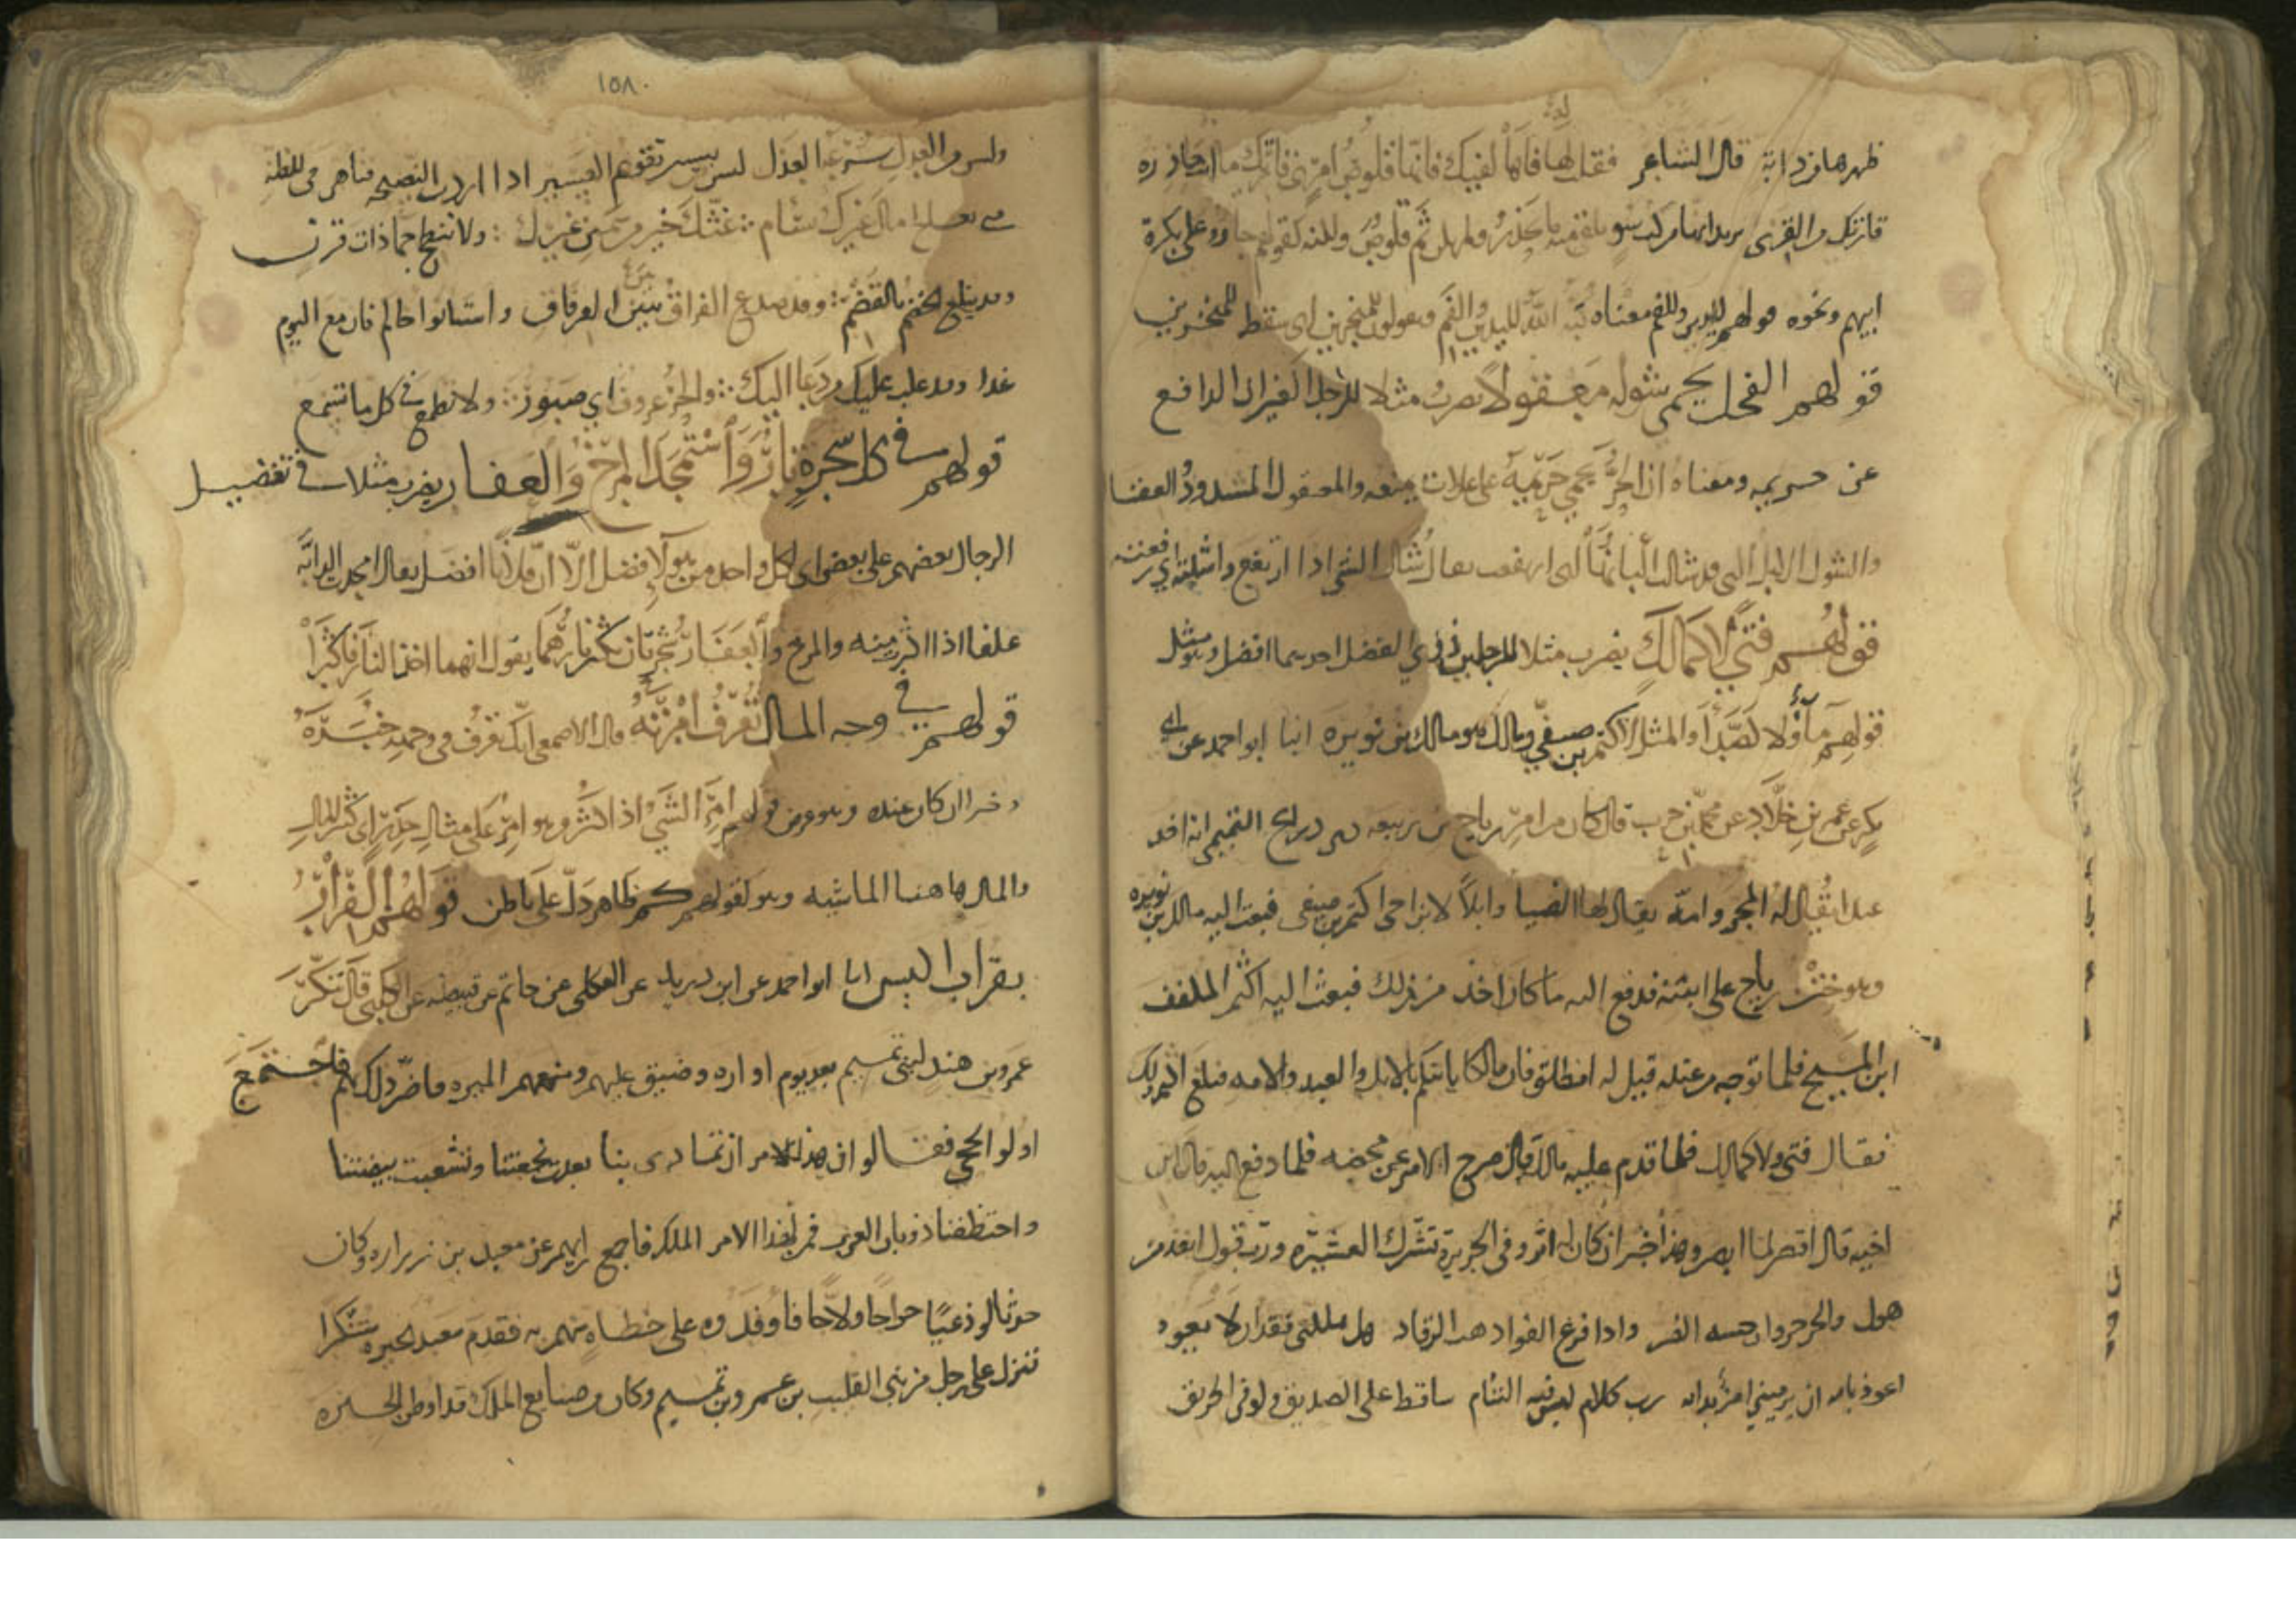 ظهرها من دابة قال الشاعر فقلت لها فاها لفيك فانها قلوص امرئ قاريك ما انت حاذره
قاريك من القرى يريد انها مركب سوء
ابيهم ونحوه قولهم لليدين وللفم معناه كبه الله لليدين والفم ويقولون للمنخرين اي سقط للمنخرين
قولهم الفحل يحمي شوله معقولا يضرب مثلا للرجل الغيران الدافع
عن حريمه ومعناه ان الحر يحمي حريمه على علات تمنعه والمعقول المشدود بالعقال
والشول الابل التي قد شالت البانها اي ارتفعت يقال شال الشي اذا ارتفع واشلته اي رفعته
قولهم فتى ولا كمالك يضرب مثلا للرجلين ذوي الفضل احدهما افضل وهو مثل
قولهم ماء ولا كصداء والمثل لاكثم بن صيفي ومالك هو مالك بن نويره انبا ابو احمد عن ابي
بكر عن عمر بن خلاد عن محمد بن حرب قال كان من امر رياح بن ربيعه انه افد
عبدا يقال له المجر وامة يقال لها الضبا وابلا لابن اخي اكثم بن صيفي فبعث اليه مالك بن نويره
وهو ختن رياح على ابنته فدفع اليه ما كان اخذ من ذلك فبعث اليه اكثم الملفف
ابن المسيح فلما توجه من عنده قيل له انطلق فان مالكا ياتيكم بالابل والعبد والامه فبلغ اكثم ذلك
فقال فتى ولا كمالك فلما قدم عليه مالك قال صرح الامر عن محضه فلما دفع اليه مال ابن
اخيه قال اقصر لما ابصر وهذا خبر ان كان له اثر وفي الجريرة تشترك العشيره ورب قول انفذ من
صول والحر حر وان مسه الضر واذا فزع الفواد ذهب الرقاد هل مهلكتي فقدان ما لا يعود
اعوذ بالله ان يرميني امرؤ بدائه رب كلام ليس فيه التئام ساقط على الصديق ولو في الحريق
١٥٨
وليس من العدل سرعة العذل ليس بيسير تقويم العسير اذا اردت النصيحه فتاهب للظنه
متى تعالج مال غيرك تسام غثك خير من سمين غيرك ولا تنطح جماء ذات قرن
وقد يبلغ الخضم بالقضم وقد صدع الفراق بين الرفاق واستانوا اخاكم فان مع اليوم
غدا وقد غلب عليك من دعا اليك والحر عروف اي صبور ولا تطمع في كل ما تسمع
قولهم في كل شجرة نار واستمجد المرخ والعفار يضرب مثلا في تفضيل
الرجال بعضهم على بعض اي لكل واحد من هؤلا فضل الا ان فلانا افضل يقال امجدت الدابة
علفا اذا اكثر منه والمرخ والعفار شجرتان تكثر نارهما يقول انهما اخذا النار فاكثرا
قولهم في وجه المال تعرف امرته قال الاصمعي اي انك تعرف في وجهه خيره
وخيرا ان كان عنده وهو من قولهم امر الشي اذا كثر وهو امر على مثال حذر اي كثير المال
والمال هاهنا الماشيه وهو كقولهم كم ظاهر دل على باطن قولهم الفرار
بقراب اكيس انبا ابو احمد عن ابن دريد عن العكلي عن حاتم عن قبيصه عن الكلبي قال تنكر
عمرو بن هند لبني تميم بعد يوم اواره وضيق عليهم ومنعهم الميره فاضر ذلك بهم فاجتمع
اولو الحجى فقالوا ان هذا الامر ان تمادى بنا بعدت نجعتنا وتشعبت بيضتنا
واختطفتنا ذوبان العرب فمن لهذا الامر الملك فاجمع رايهم عن معبد بن زراره وكان
حدثا لوذعيا خراجا ولاجا فاوفدوه على خطاه منهم به فقدم معبد الحيره متنكرا
فنزل على رجل من بني القليب بن عمرو بن تميم وكان من صنايع الملك قد اوطن الحيره